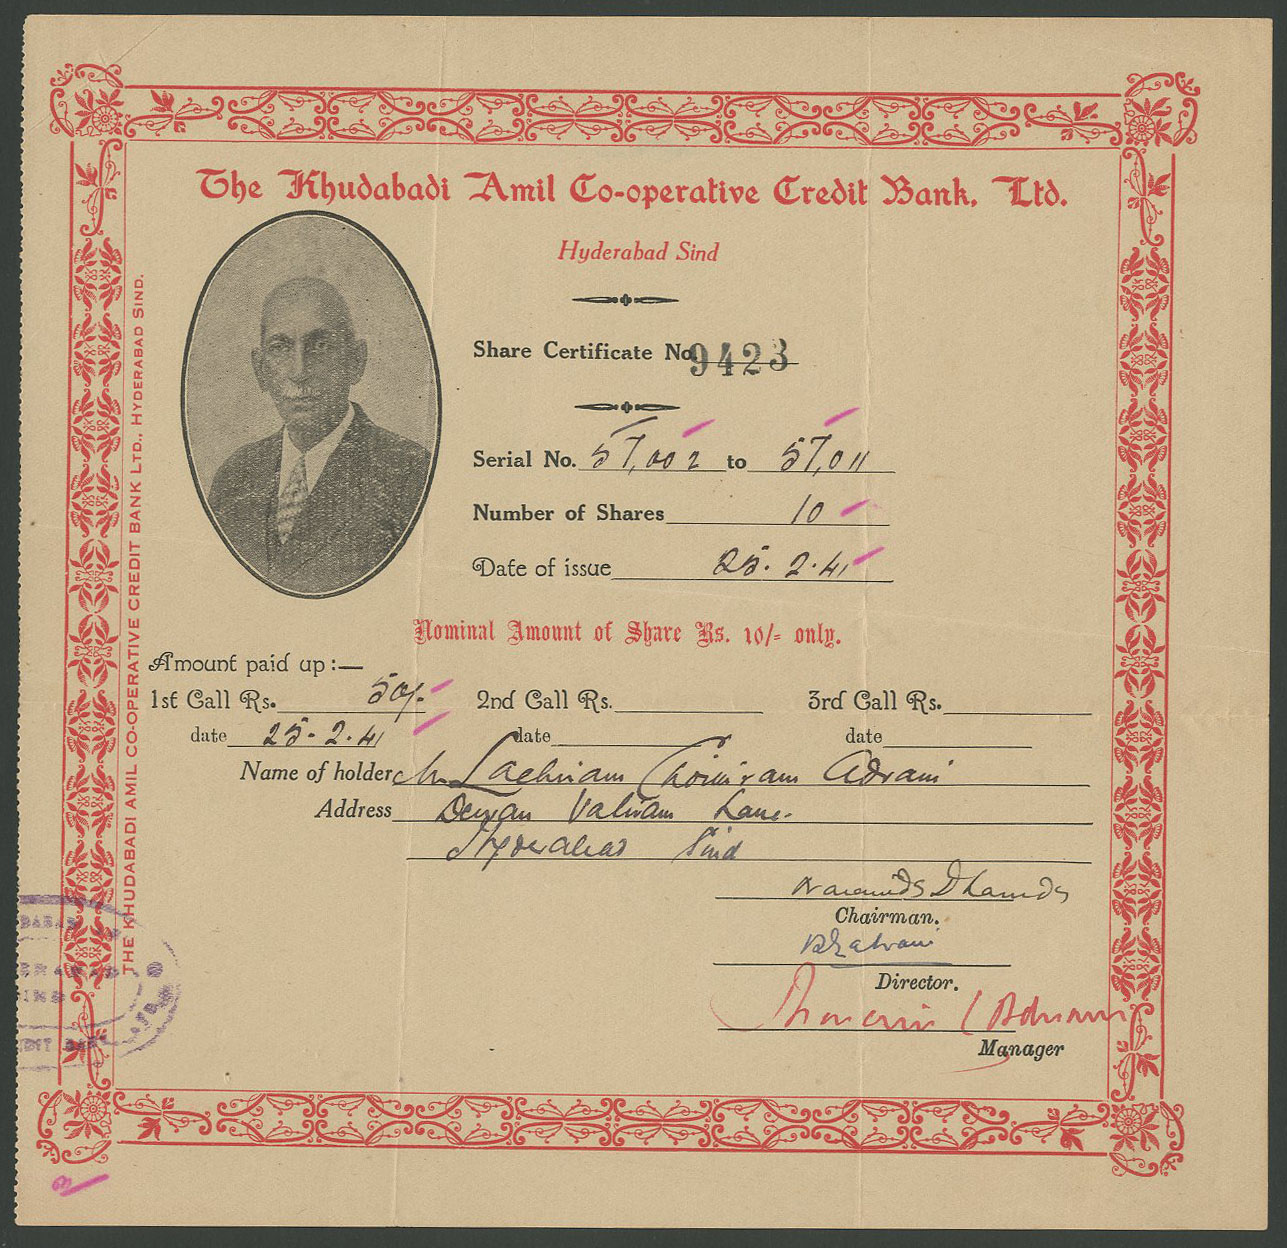 The Khudabadi Amil Co-operative Credit Bank, Ltd.
Hyderabad Sind
Share Certificate No. 9423
Serial No. 57,002 to 57,011
Number of Shares 10
Date of issue 25.2.41
Nominal Amount of Share Rs. 10/= only.
Amount paid up :—
1st Call Rs. 50/- 2nd Call Rs. 3rd Call Rs.
date 25.2.41 date date
Name of holder Mr Lachiram Choitram Advani
Address Dewan Valiram Lane.
Hyderabad Sind
Chairman.
Director.
Manager
THE KHUDABADI AMIL CO-OPERATIVE CREDIT BANK LTD., HYDERABAD SIND.